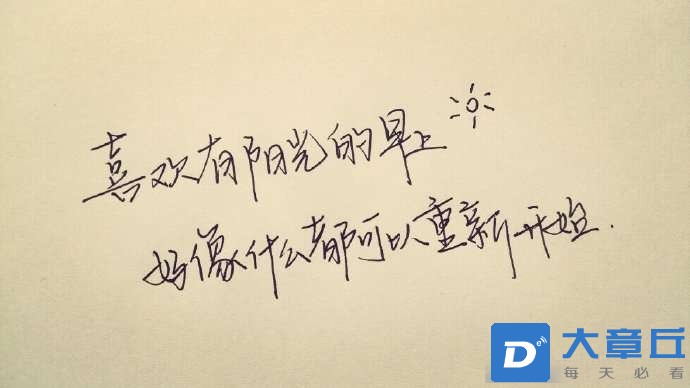 喜欢有阳光的早上
好像什么都可以重新开始.
D e
大章丘
每天必看